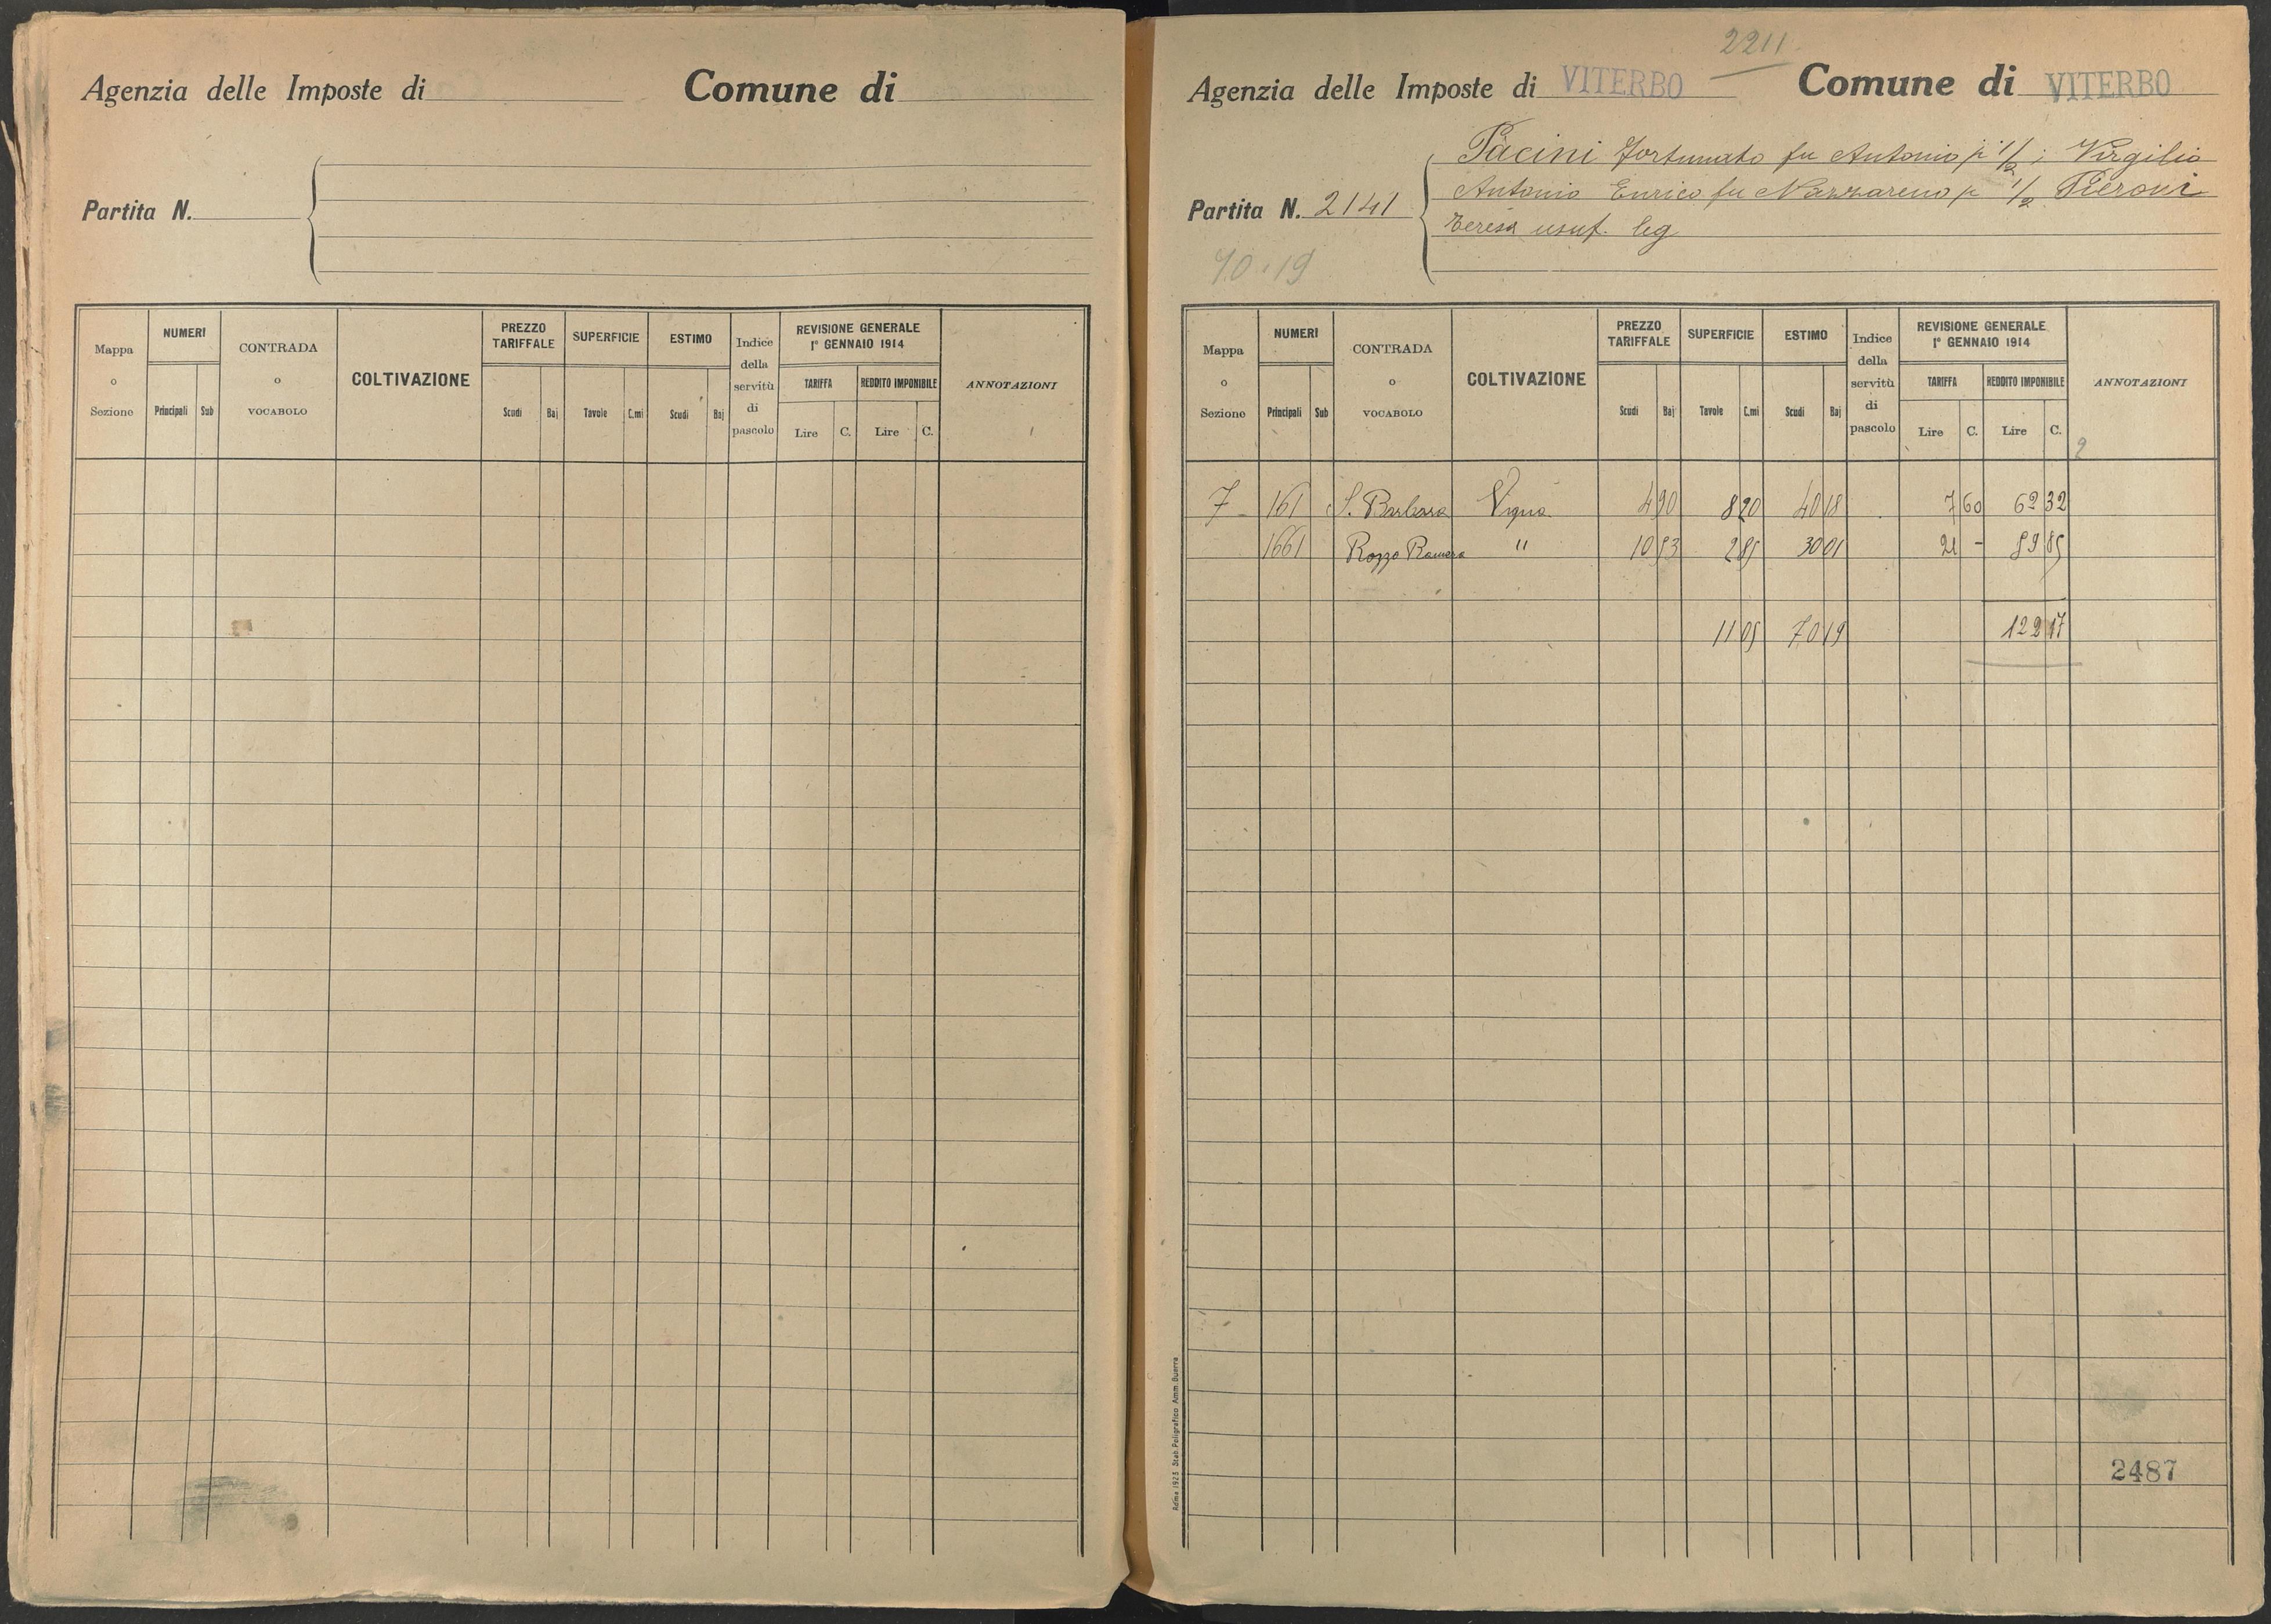 Agenzia delle Imposte di Comune di
Partita N.
Mappa o Sezione NUMERI Principali Sub CONTRADA o VOCABOLO COLTIVAZIONE PREZZO TARIFFALE Scudi Baj SUPERFICIE Tavole C.mi ESTIMO Scudi Baj Indice della servitù di pascolo REVISIONE GENERALE 1° GENNAIO 1914 TARIFFA Lire C. REDDITO IMPONIBILE Lire C. ANNOTAZIONI
2211
Agenzia delle Imposte di VITERBO Comune di VITERBO
Pacini Fortunato fu Antonio p 1/2; Virgilio
Antonio Enrico fu Nazzareno p 1/2 Pieroni
Teresa usuf. leg
Partita N. 2141
70.19
Mappa o Sezione NUMERI Principali Sub CONTRADA o VOCABOLO COLTIVAZIONE PREZZO TARIFFALE Scudi Baj SUPERFICIE Tavole C.mi ESTIMO Scudi Baj Indice della servitù di pascolo REVISIONE GENERALE 1° GENNAIO 1914 TARIFFA Lire C. REDDITO IMPONIBILE Lire C. ANNOTAZIONI
2
7 161 S. Barbara Vigna 4 90 8 20 40 18 7 60 62 32
1661 Rozzo " 10 53 2 85 30 01 21 - 59 85
11 05 70 19 122 17
2487
Roma 1923 Stab. Poligrafico Amm. Guerra